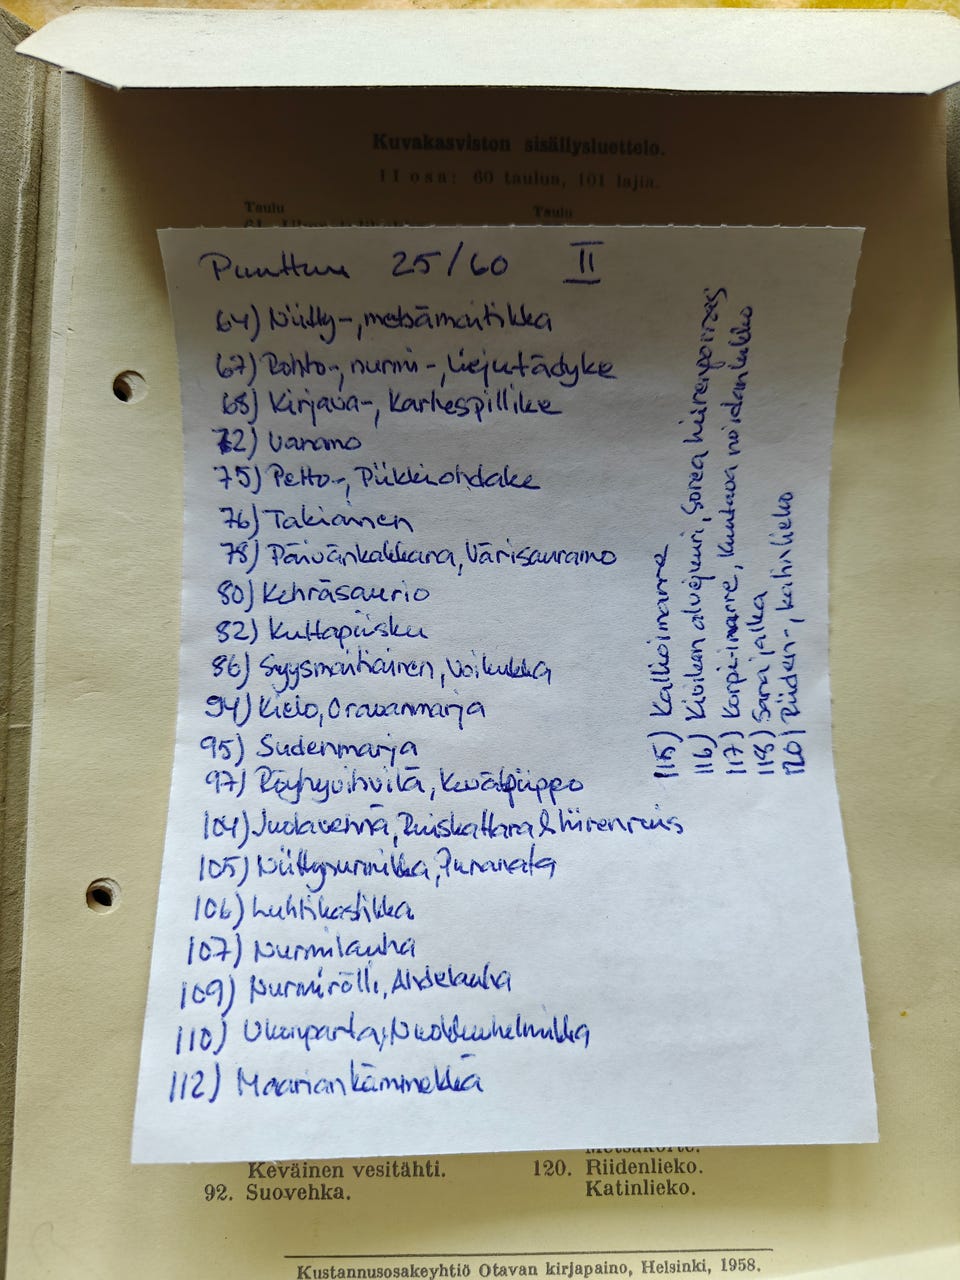 Kuvakasviston sisällysluettelo.
II osa: 60 taulua, 101 lajia.
Taulu Taulu
Puuttuu 25/60 II
64) Niitty-, metsämaitikka
67) Rohto-, nurmi-, liejutädyke
68) Kirjava-, Karhespillike
72) Vanamo
75) Pelto-, Piikkiohdake
76) Takiainen
78) Päivänkakkara, Värisauramo
80) Kehräsaunio
82) Kultapiisku
86) Syysmaitiainen, Voikukka
94) Kielo, Oravanmarja
95) Sudenmarja
97) Röyhyvihvilä, Kevätpiippo
104) Juolavehnä, Ruiskattara & hiirenruis
105) Niittynurmikka, Punanata
106) Luhtikastikka
107) Nurmilauha
109) Nurmirölli, Ahdelauha
110) Ukonparta, Nuokkuhelmikka
112) Maariankämmekkä
115) Kallioimarre
116) Kivikon alvejuuri, Sorea hiirenporras
117) Korpi-imarre, Kuutava noidanlukko
118) Sanajalka
120) Riiden-, katinlieko
Keväinen vesitähti.
92. Suovehka.
Metsäkorte.
120. Riidenlieko.
Katinlieko.
Kustannusosakeyhtiö Otavan kirjapaino, Helsinki, 1958.